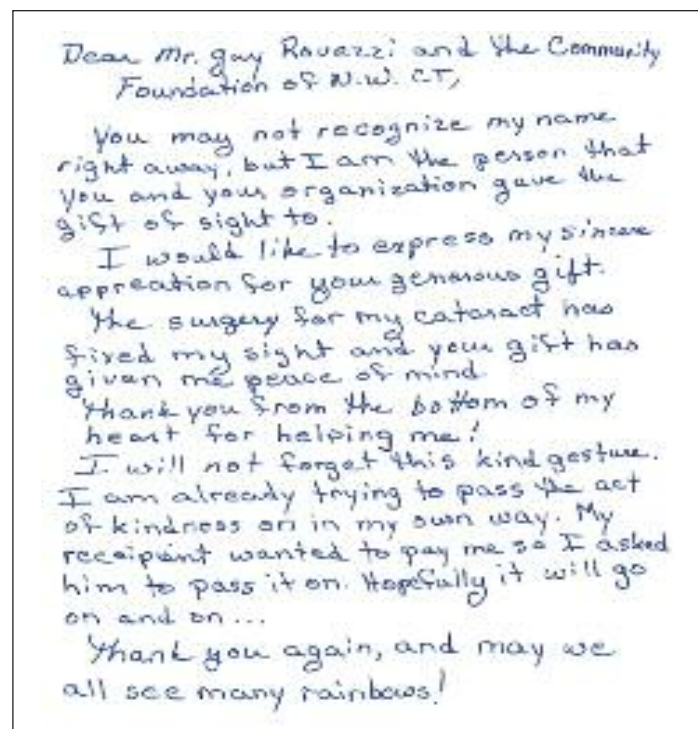 Dear Mr. Guy Rovezzi and the Community
Foundation of N.W. CT,
You may not recognize my name
right away, but I am the person that
you and your organization gave the
gift of sight to.
I would like to express my sincere
appreation for your generous gift.
The surgery for my cataract has
fixed my sight and your gift has
given me peace of mind
Thank you from the bottom of my
heart for helping me!
I will not forget this kind gesture.
I am already trying to pass the act
of kindness on in my own way. My
receipient wanted to pay me so I asked
him to pass it on. Hopefully it will go
on and on...
Thank you again, and may we
all see many rainbows!